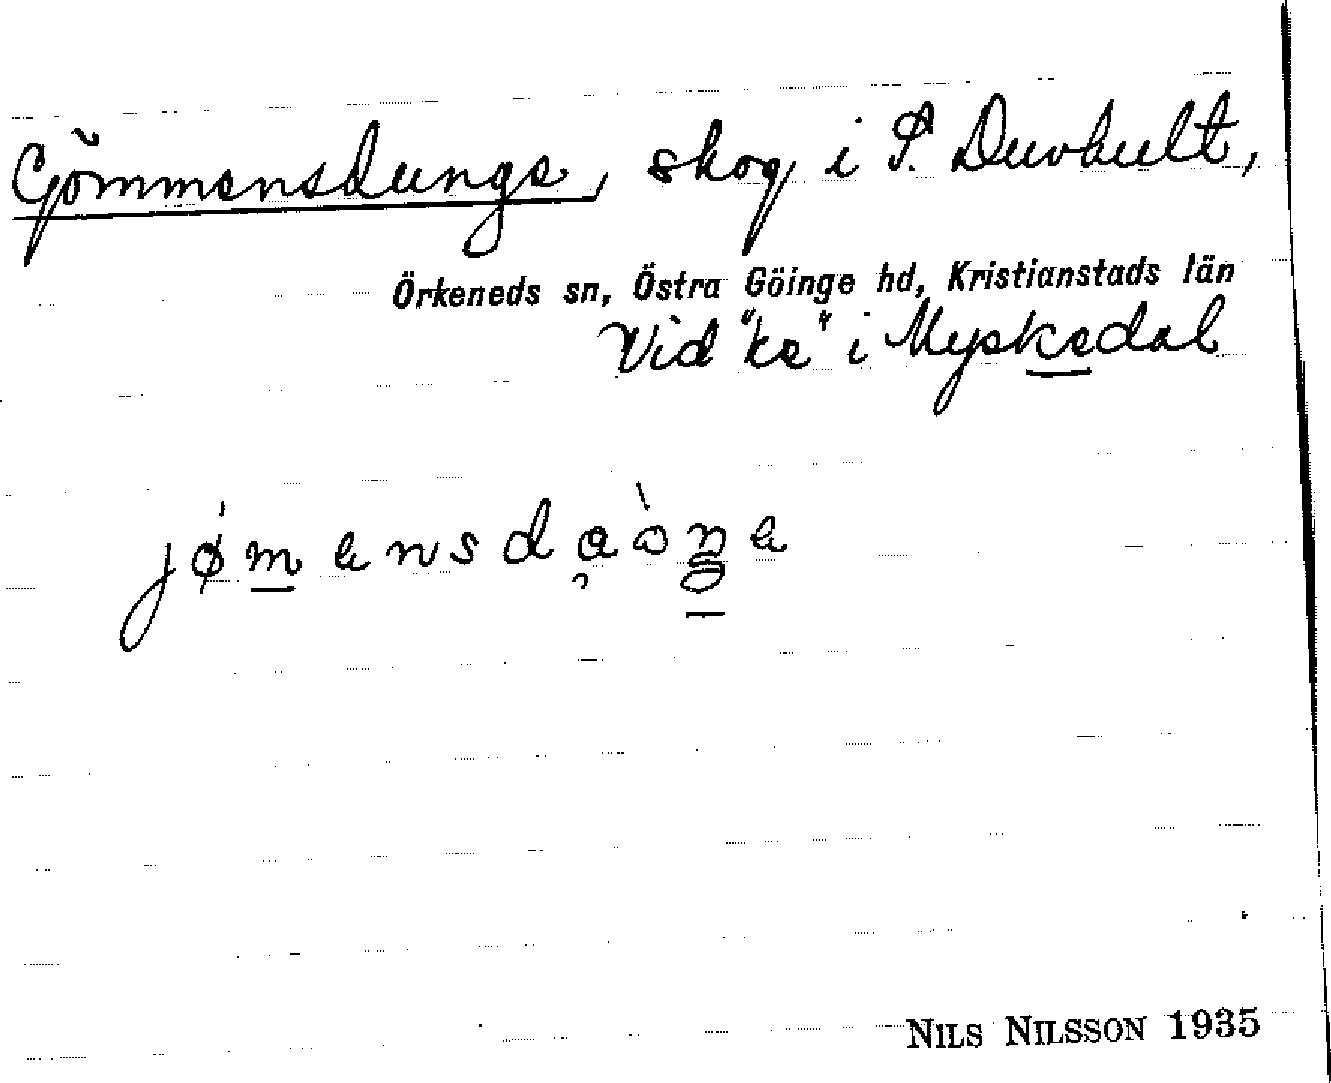 Gömmensdunge, skog i S. Duvhult,
Örkeneds sn, Östra Göinge hd, Kristianstads län
Vid "ke" i Myskedal
NILS NILSSON 1935